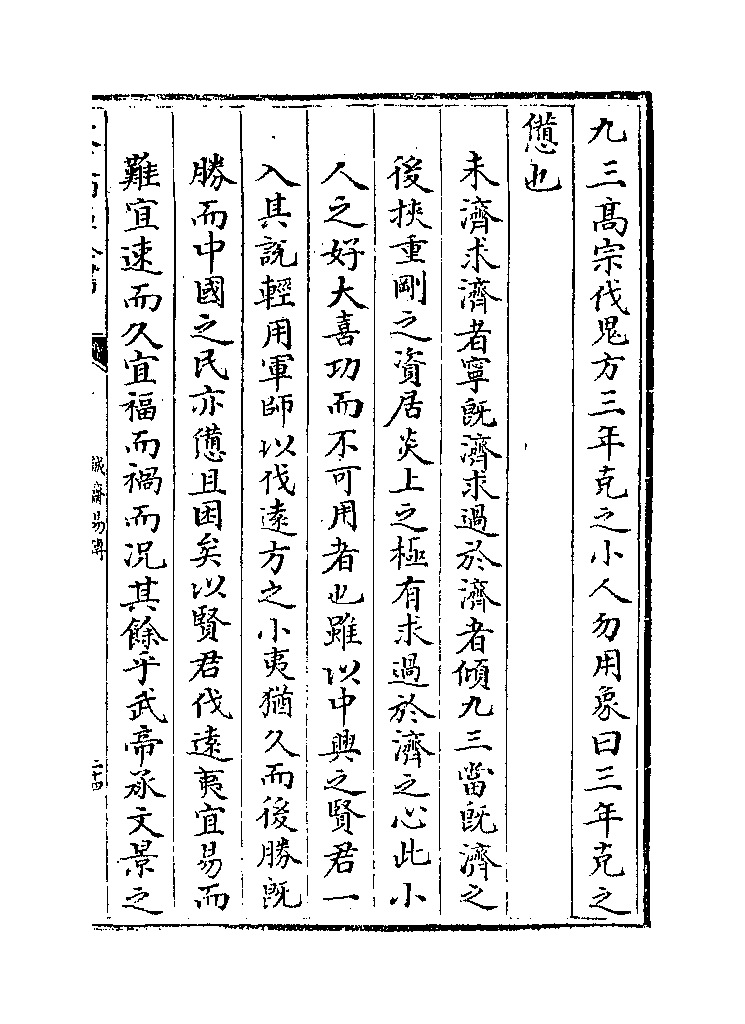 九三髙宗伐鬼方三年克之小人勿用象曰三年克之
憊也
未濟求濟者寧既濟求過於濟者傾九三當既濟之
後挾重剛之資居炎上之極有求過於濟之心此小
人之好大喜功而不可用者也雖以中興之賢君一
入其說輕用軍師以伐逺方之小夷猶久而後勝既
勝而中國之民亦憊且困矣以賢君伐逺夷宜易而
難宜速而久宜福而禍而况其餘乎武帝承文景之
誠齋易傳
二十四